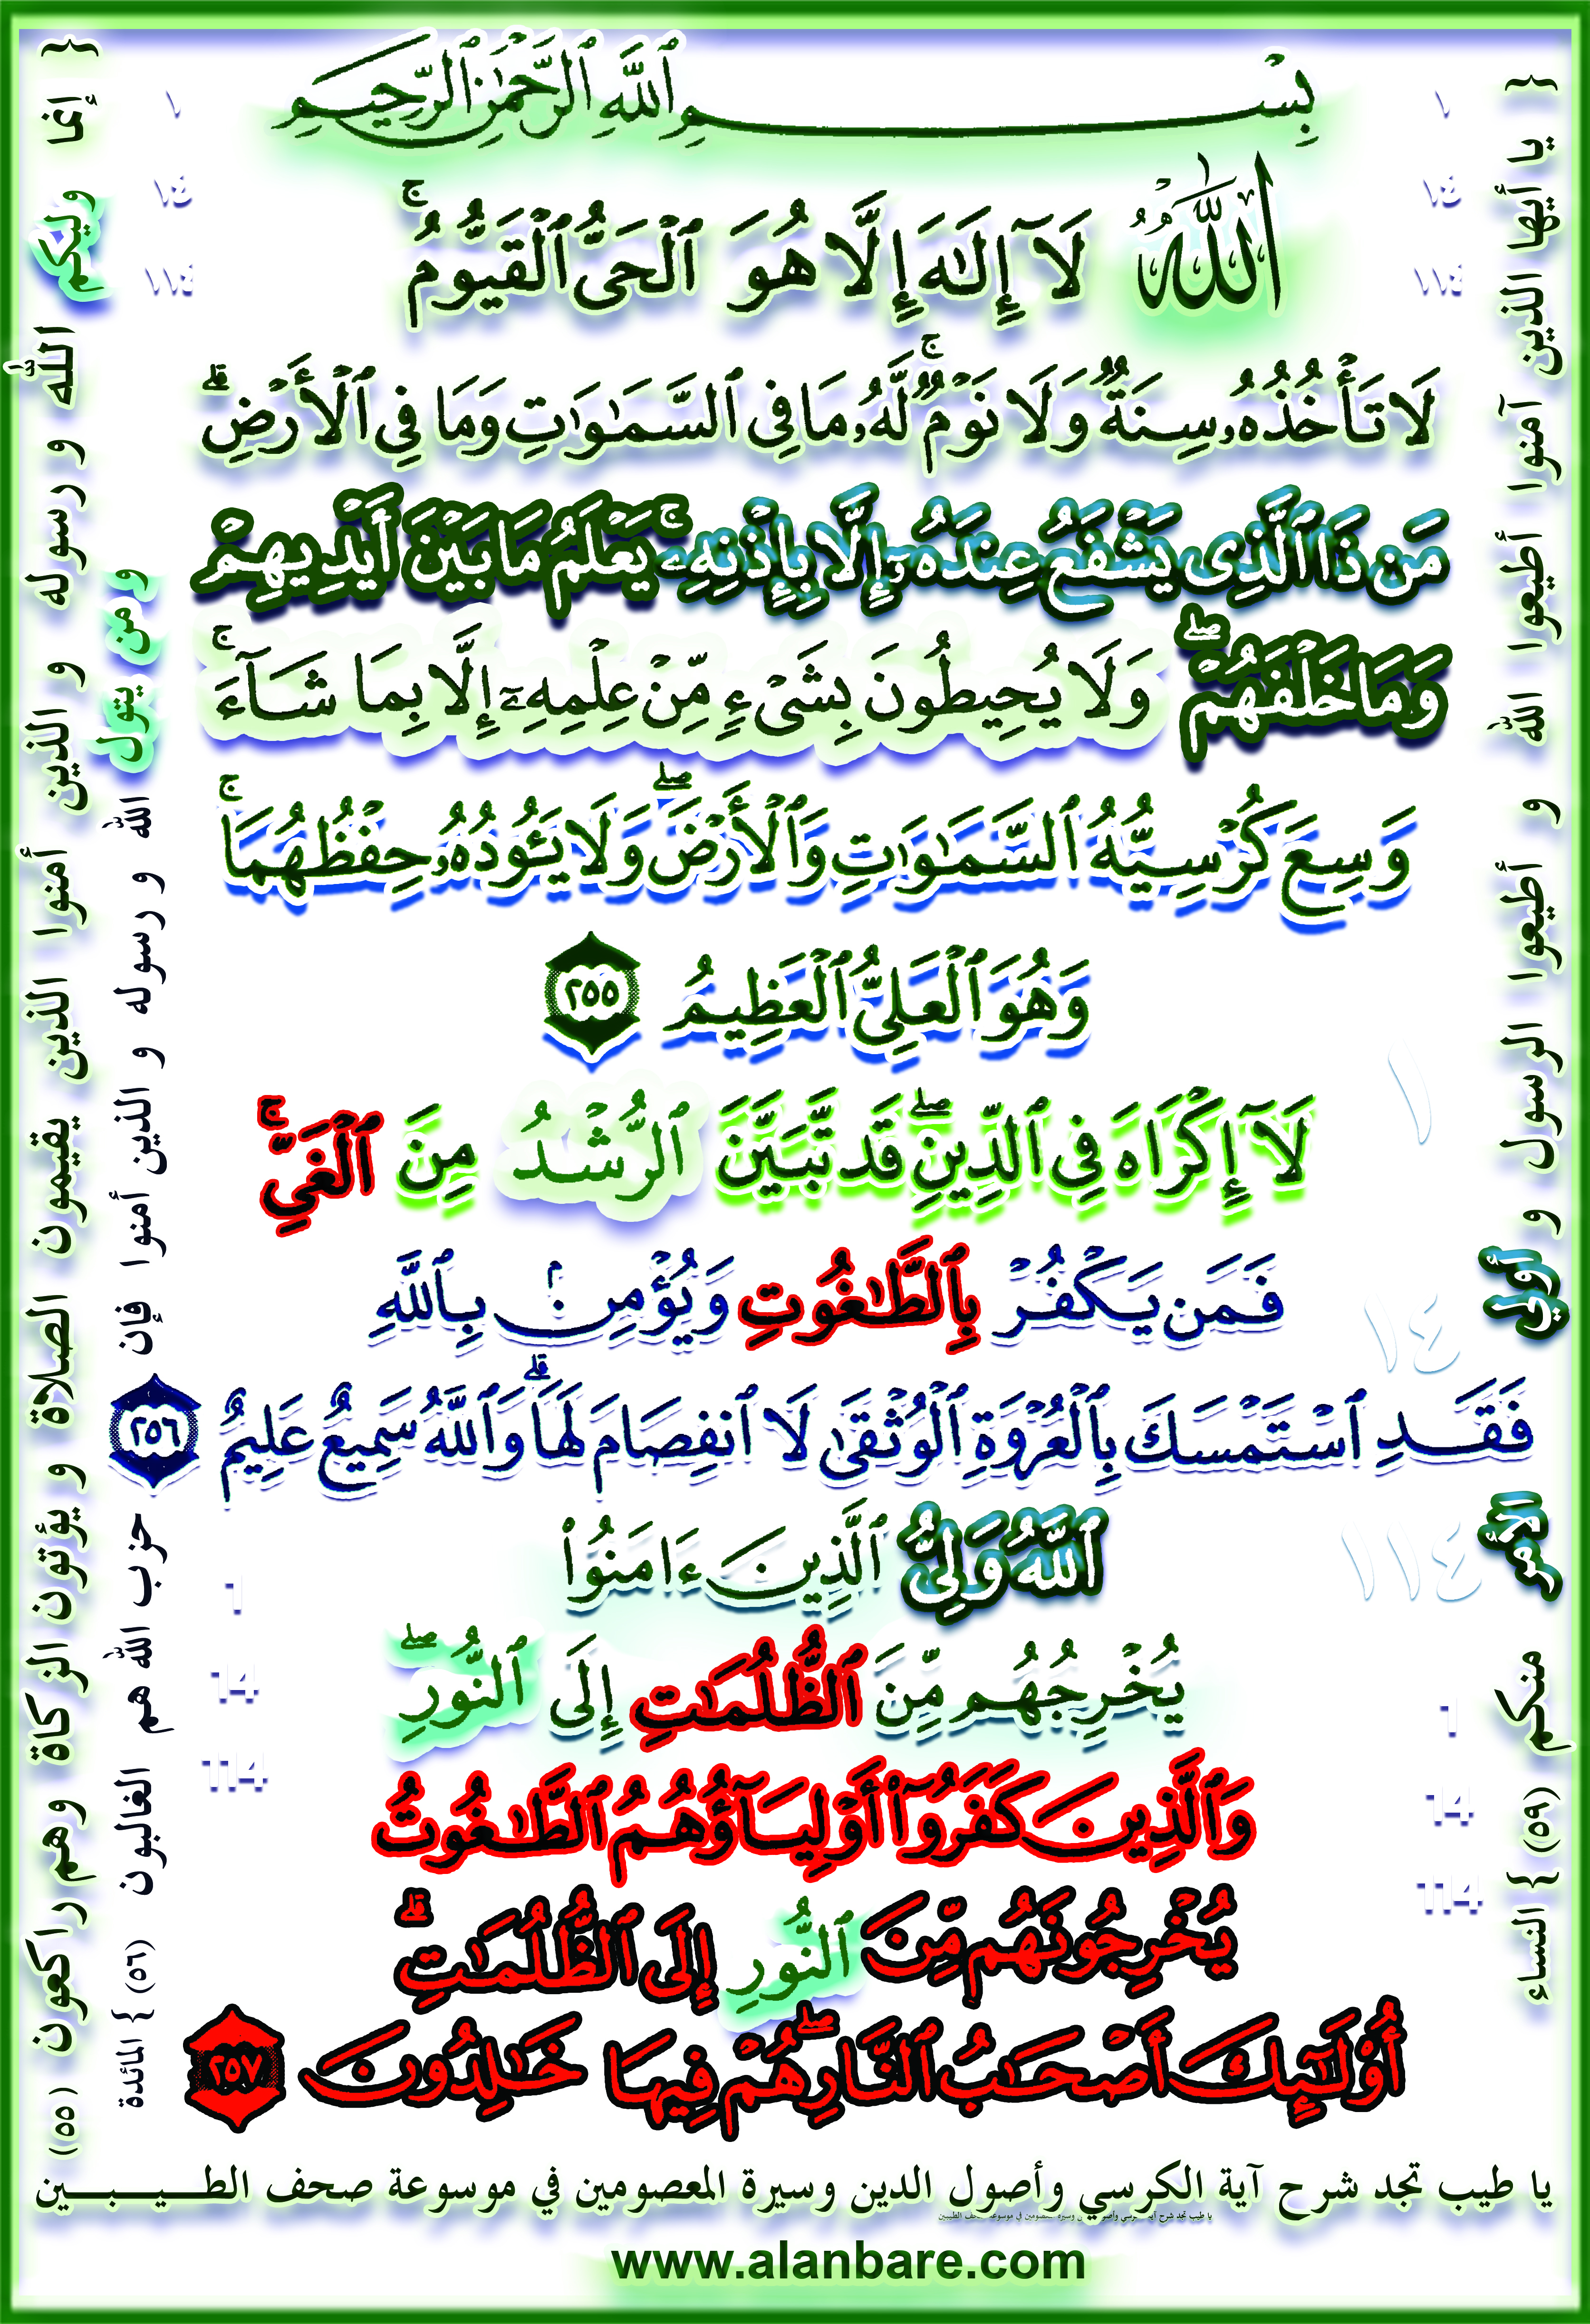 بِسْمِ ٱللَّهِ ٱلرَّحْمَٰنِ ٱلرَّحِيمِ
ٱللَّهُ لَآ إِلَٰهَ إِلَّا هُوَ ٱلْحَىُّ ٱلْقَيُّومُ ۚ
لَا تَأْخُذُهُۥ سِنَةٌ وَلَا نَوْمٌ ۚ لَّهُۥ مَا فِى ٱلسَّمَٰوَٰتِ وَمَا فِى ٱلْأَرْضِ ۗ
مَن ذَا ٱلَّذِى يَشْفَعُ عِندَهُۥٓ إِلَّا بِإِذْنِهِۦ ۚ يَعْلَمُ مَا بَيْنَ أَيْدِيهِمْ
وَمَا خَلْفَهُمْ ۖ وَلَا يُحِيطُونَ بِشَىْءٍ مِّنْ عِلْمِهِۦٓ إِلَّا بِمَا شَآءَ ۚ
وَسِعَ كُرْسِيُّهُ ٱلسَّمَٰوَٰتِ وَٱلْأَرْضَ ۖ وَلَا يَـُٔودُهُۥ حِفْظُهُمَا ۚ
وَهُوَ ٱلْعَلِىُّ ٱلْعَظِيمُ ٢٥٥
لَآ إِكْرَاهَ فِى ٱلدِّينِ ۖ قَد تَّبَيَّنَ ٱلرُّشْدُ مِنَ ٱلْغَىِّ ۚ
فَمَن يَكْفُرْ بِٱلطَّٰغُوتِ وَيُؤْمِنۢ بِٱللَّهِ
فَقَدِ ٱسْتَمْسَكَ بِٱلْعُرْوَةِ ٱلْوُثْقَىٰ لَا ٱنفِصَامَ لَهَا ۗ وَٱللَّهُ سَمِيعٌ عَلِيمٌ ٢٥٦
ٱللَّهُ وَلِىُّ ٱلَّذِينَ ءَامَنُوا۟
يُخْرِجُهُم مِّنَ ٱلظُّلُمَٰتِ إِلَى ٱلنُّورِ ۖ
وَٱلَّذِينَ كَفَرُوٓا۟ أَوْلِيَآؤُهُمُ ٱلطَّٰغُوتُ
يُخْرِجُونَهُم مِّنَ ٱلنُّورِ إِلَى ٱلظُّلُمَٰتِ ۗ
أُو۟لَٰٓئِكَ أَصْحَٰبُ ٱلنَّارِ ۖ هُمْ فِيهَا خَٰلِدُونَ ٢٥٧
{ يا أيها الذين آمنوا أطيعوا الله و أطيعوا الرسول و أولي الأمر منكم (٥٩) } النساء
{ إنما وليكم الله و رسوله و الذين أمنوا الذين يقيمون الصلاة و يؤتون الزكاة وهم راكعون (٥٥)
و من يتول الله و رسوله و الذين أمنوا فإن حزب الله هم الغالبون (٥٦) } المائدة
١
١٤
١١٤
١
١٤
١١٤
١
١٤
١١٤
1
14
114
1
14
114
يا طيب تجد شرح آية الكرسي وأصول الدين وسيرة المعصومين في موسوعة صحف الطـــيـــبـــين
يا طيب تجد شرح آية الكرسي وأصول الدين وسيرة المعصومين في موسوعة صحف الطيبين
www.alanbare.com